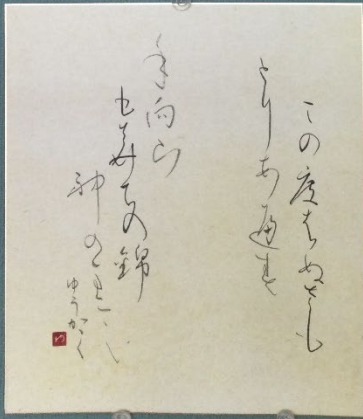 この度はぬさも
とりあへず
手向山
もみちの錦
神のまにまに
ゆうがく